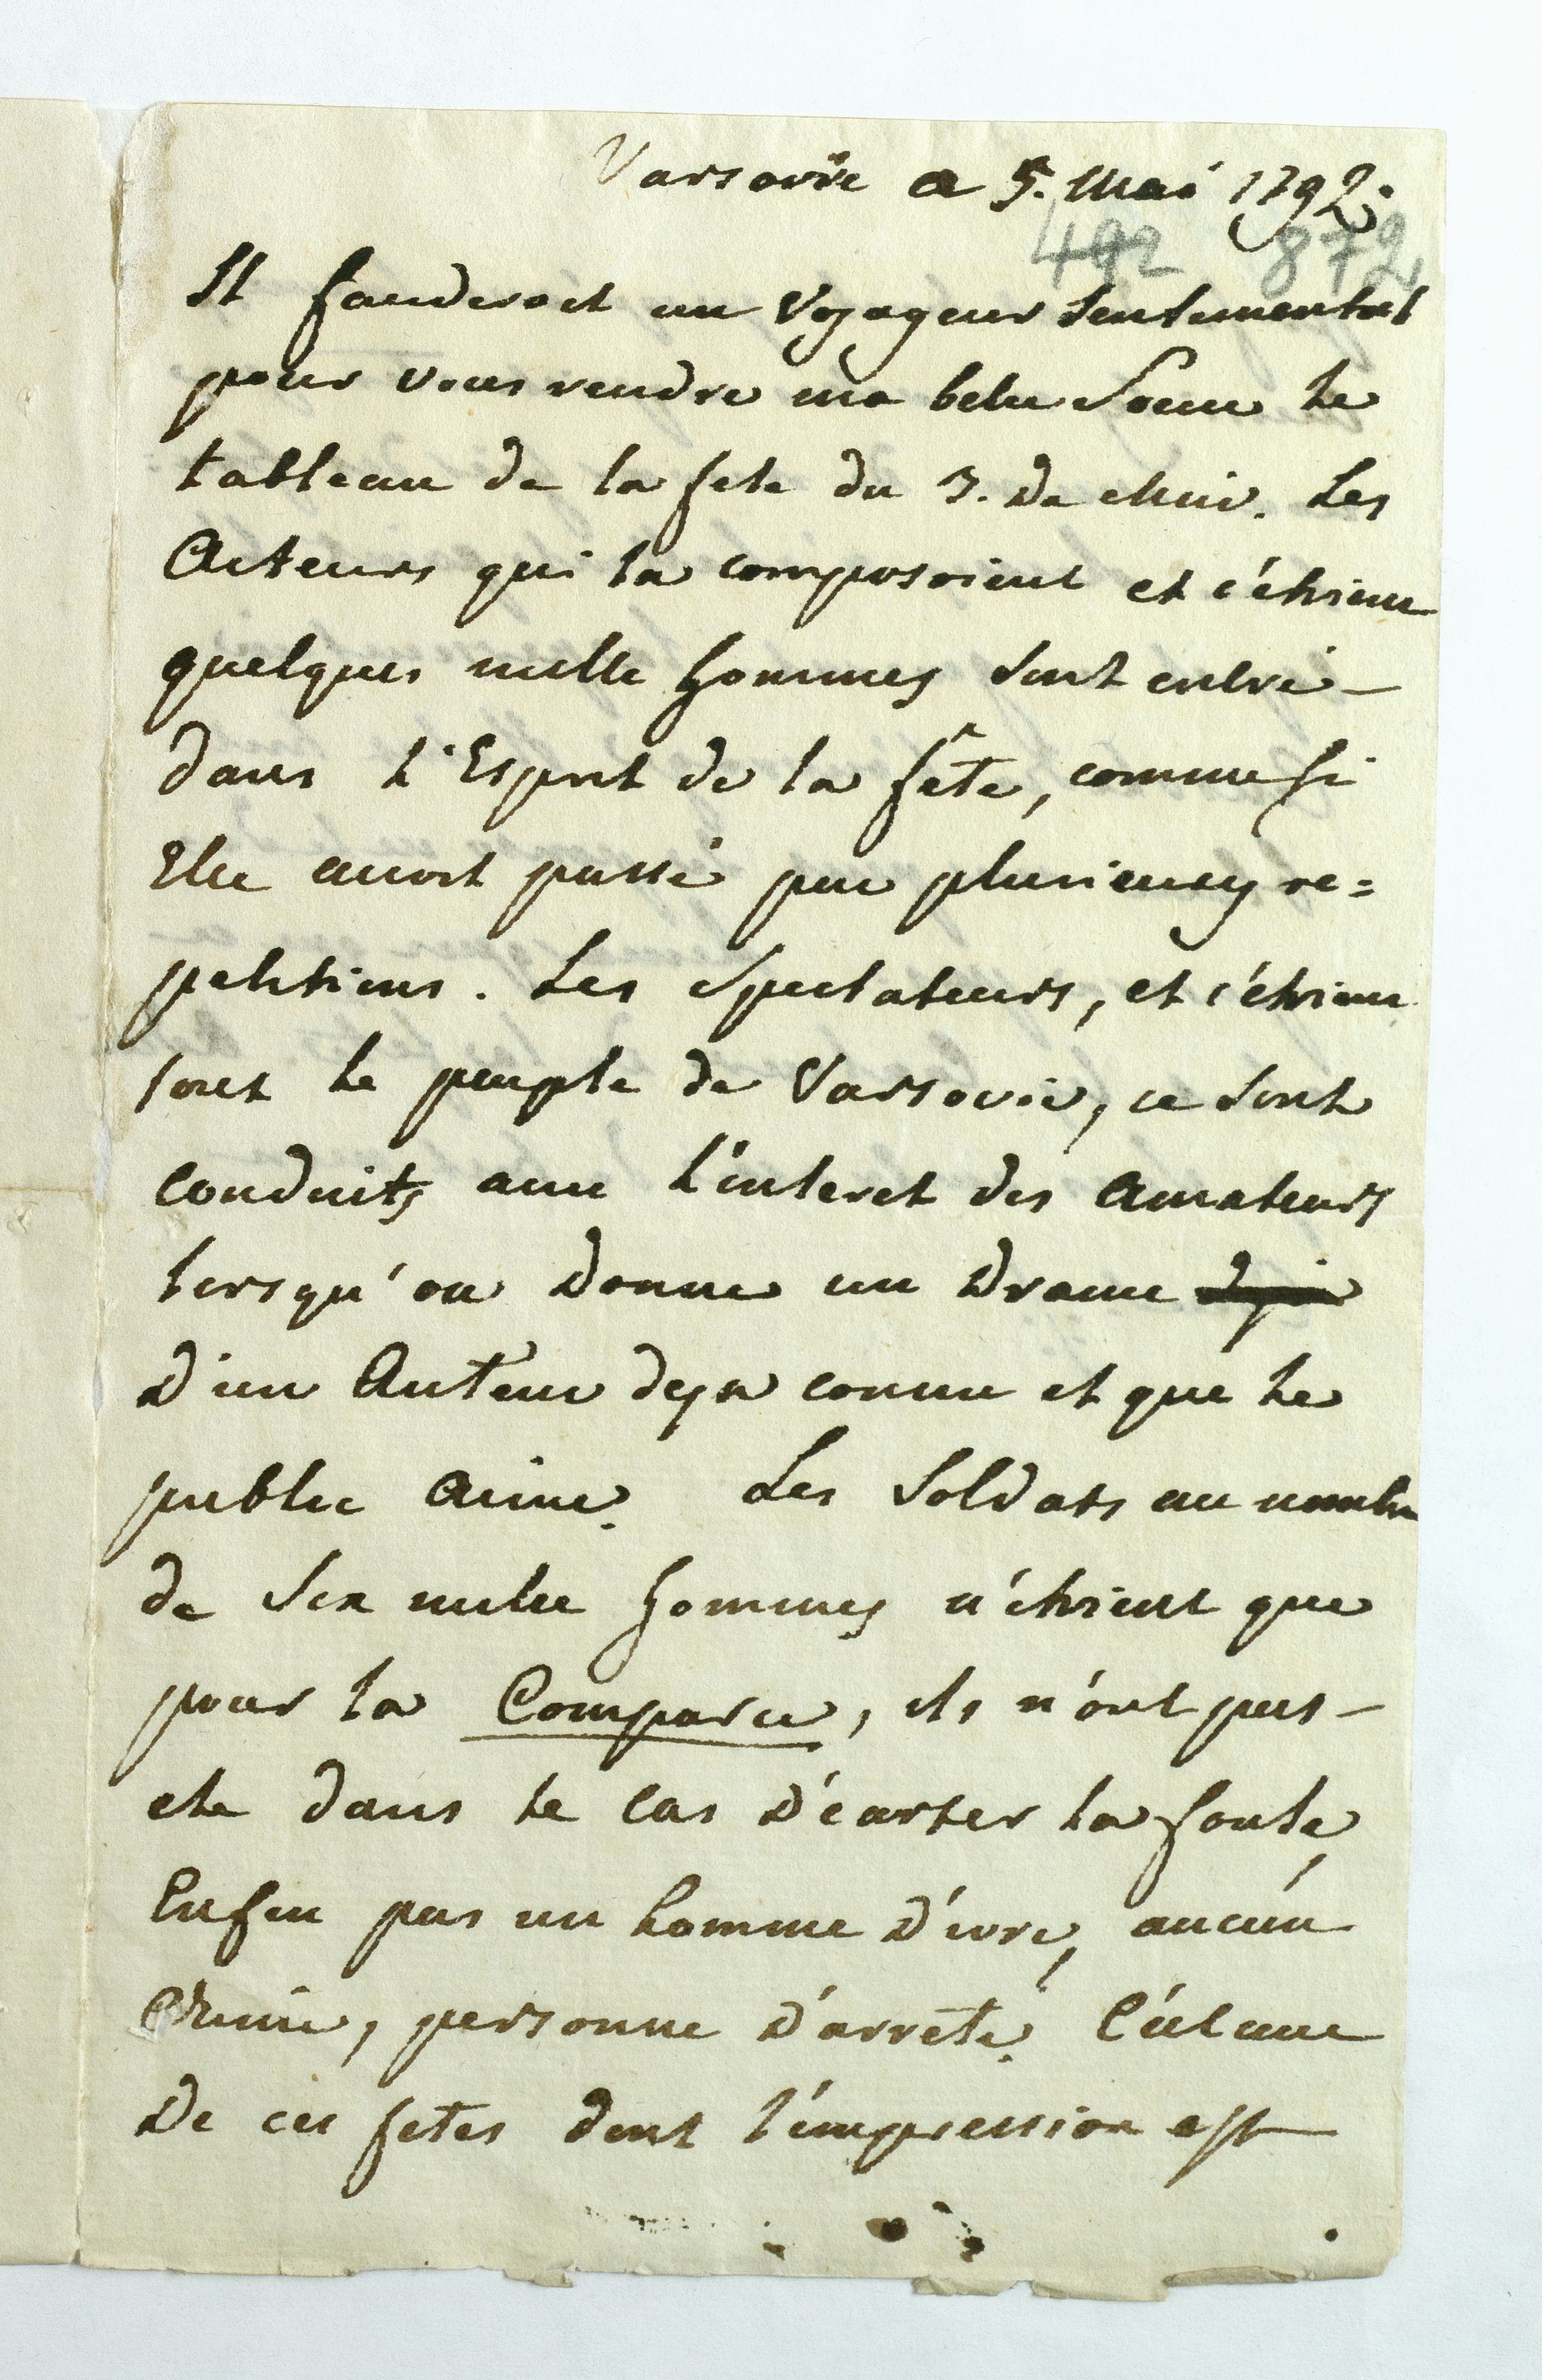 Varsovie a 5. Mai 1792.
492 872
Il fauderoit un Voyageur Sentimental
pour vous rendre ma belle Soeur le
tableau de la fete du 3. de Mai. Les
Acteurs qui la composoient et c'étoient
quelques mille hommes sont entré
dans l'Esprit de la fête, comme si
Elle auroit passé par plusieurs re=
petitions. Les Spectateurs, et c'étoient
tout le peuple de Varsovie, ce sont
conduits avec l'interet des Amateurs
lorsqu'on donne un Drame
d'un Auteur deja connu et que le
public aime. Les Soldats au nombre
de Six mille hommes n'étoient que
pour la Comparce, ils n'ont pas
ete dans le cas d'écarter la foule,
Enfin pas un homme d'ivre, aucun
Crime, personne d'arrete. C'est une
de ces fetes dont l'impression est